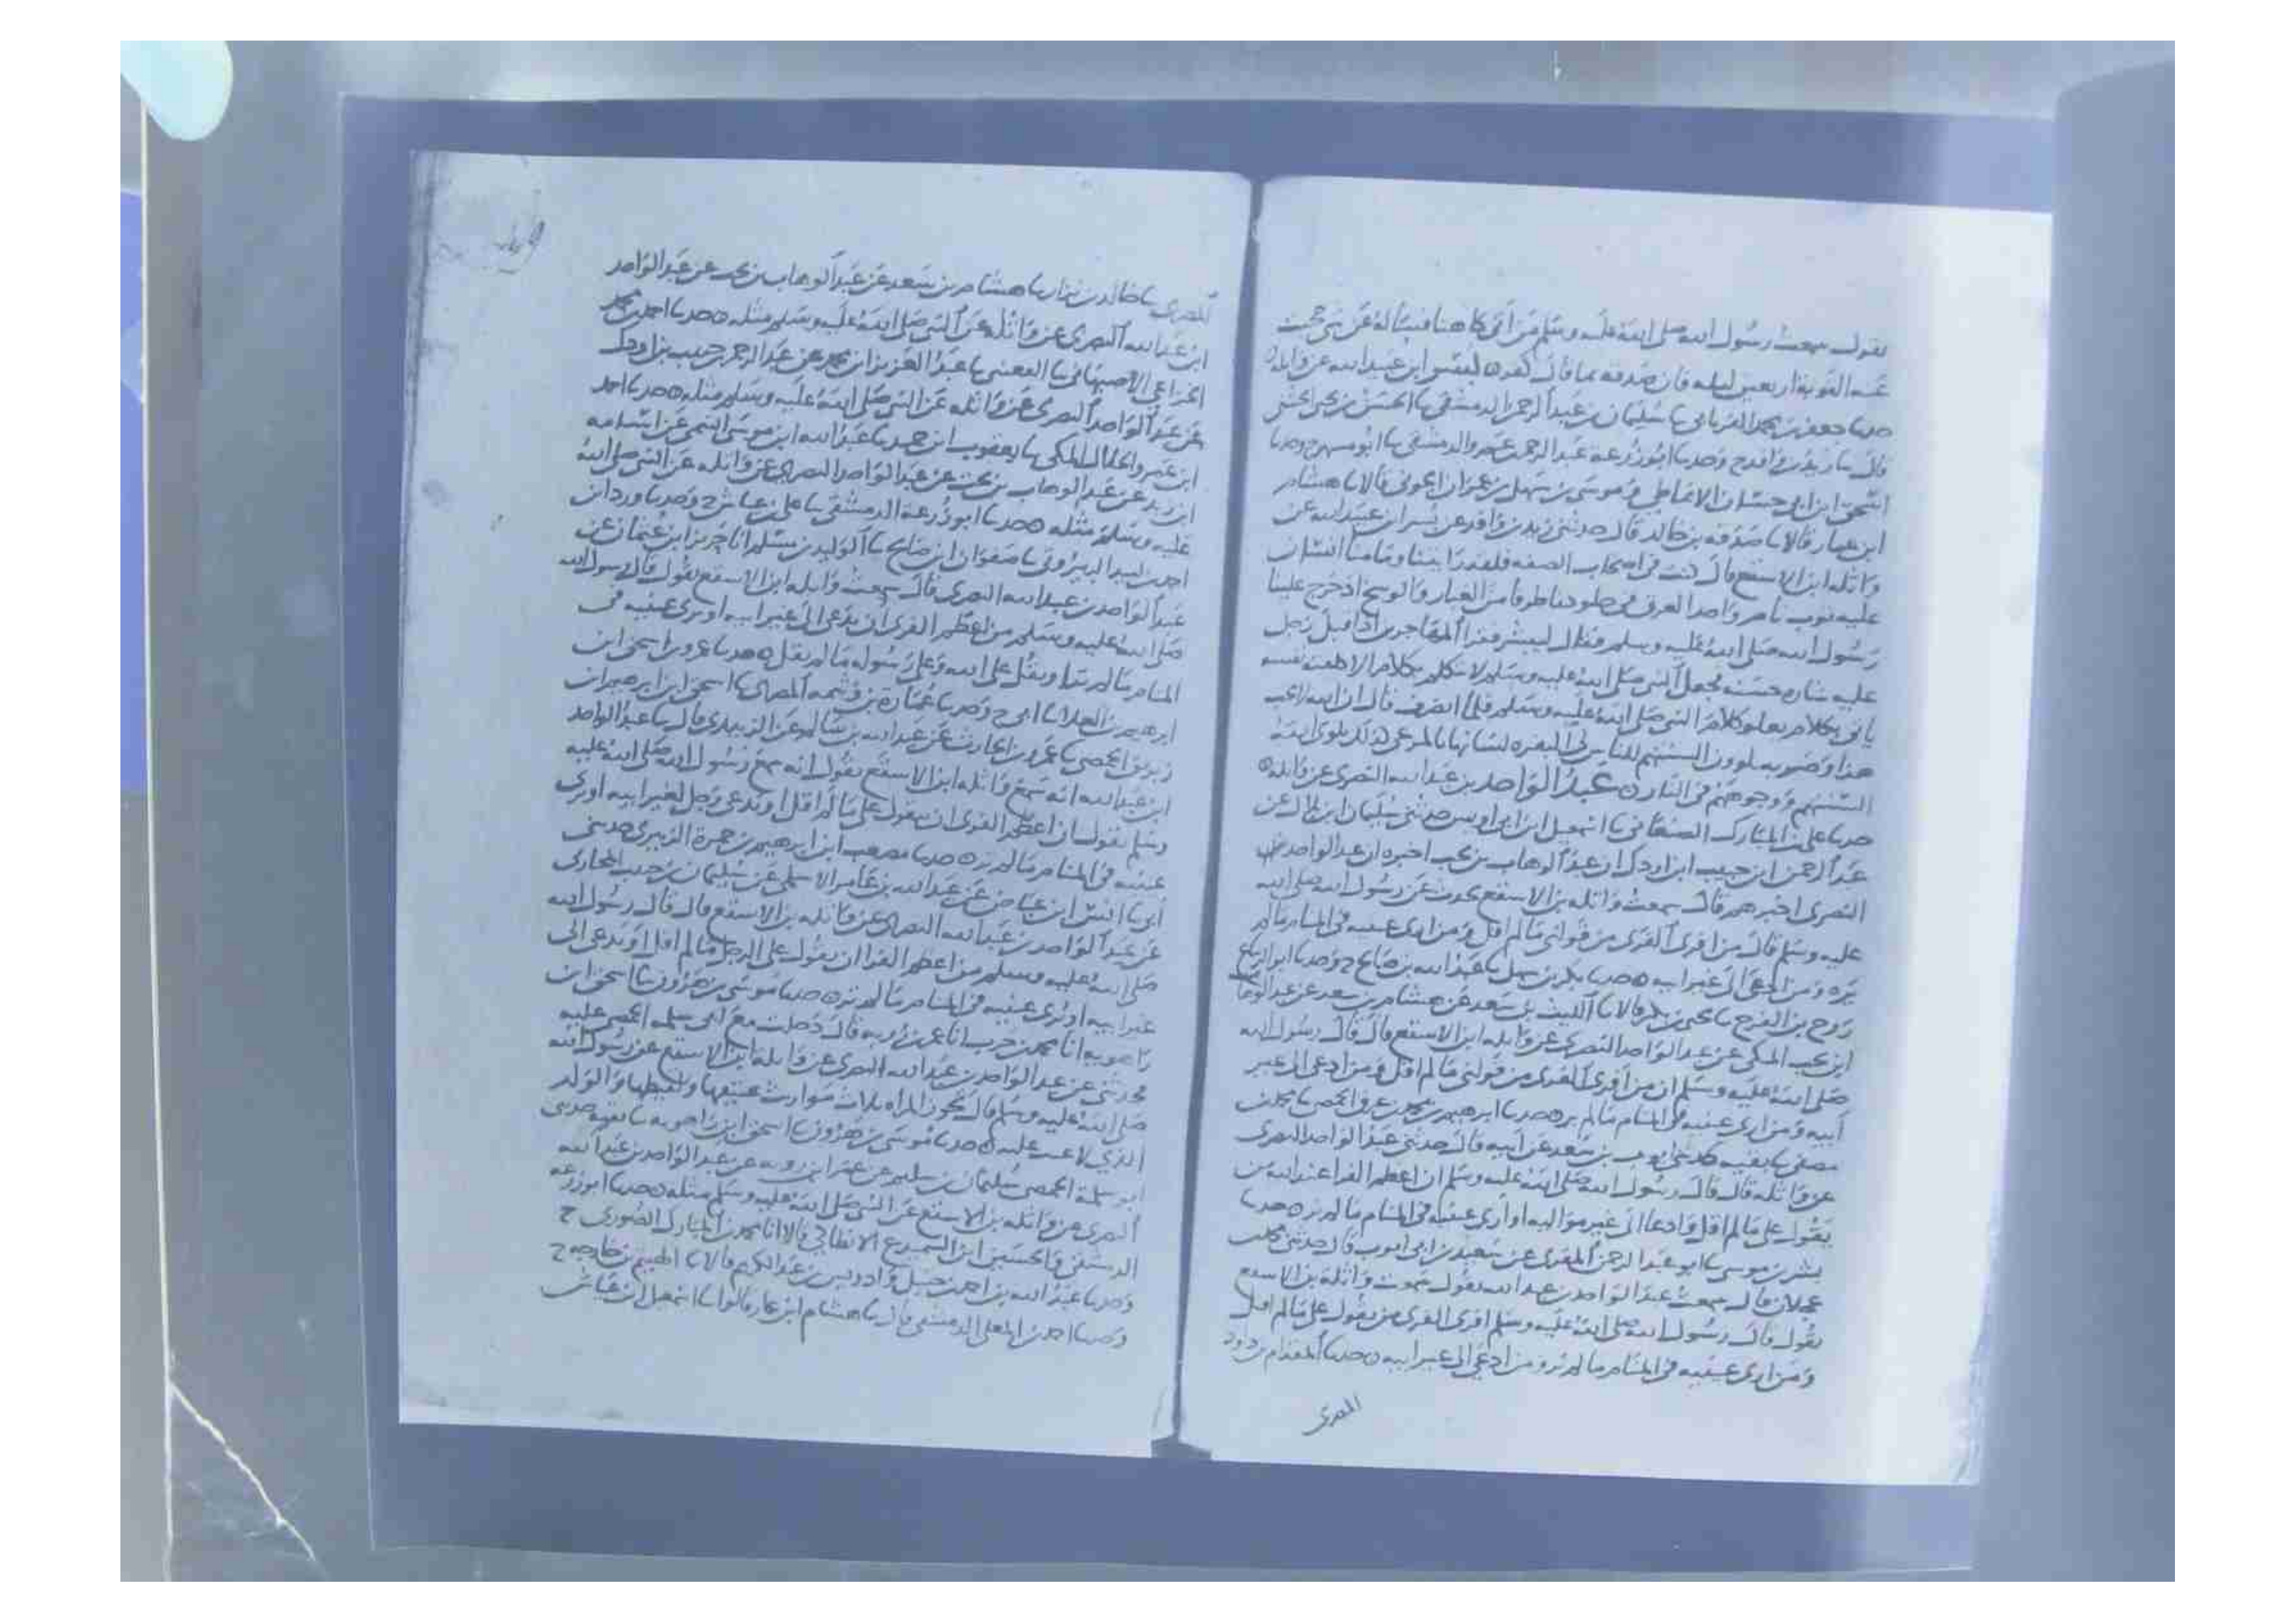 يقول سمعت رسول الله صلى الله عليه وسلم من أتى كاهنا فسأله عن شي حجبت
عنه التوبة اربعين ليله فان صدقه بما قال كفر ٥ بسر ابن عبيد الله عن واثلة
حدثنا جعفر بن محمد الفريابي نا سليمان بن عبد الرحمن الدمشقي نا الحسن بن يحيى الخشني
قال نا زيد بن واقد ح وحدثنا ابو زرعة عبد الرحمن بن عمرو الدمشقي نا ابو مسهر ح وحدثنا
اسحق ابن ابي حسان الانماطي وموسى بن سهل بن عمران الجوني قالا نا هشام
ابن عمار قالا نا صدقه بن خالد قال حدثني زيد بن واقد عن بسر ابن عبيد الله عن
واثله ابن الاسقع قال كنت في اصحاب الصفه فلقد رايتنا وما منا انسان
عليه ثوب تام واخذ العرق في جلودنا طرقا من الغبار والوسخ اذ خرج علينا
رسول الله صلى الله عليه وسلم فقال ليبشر فقرا المهاجرين اذ اقبل رجل
عليه شاره حسنه فجعل النبي صلى الله عليه وسلم لا يتكلم بكلام الا كلفته نفسه
ياتي بكلام يعلو كلام النبي صلى الله عليه وسلم فلما انصرف قال ان الله لا يحب
هذا وضربه يلوون السنتهم للناس لي البقره لسانها بالمرعى كذلك يلوي الله
السنتهم ووجوههم في النار ٥ عبد الواحد بن عبد الله النصري عن واثلة ٥
حدثنا علي بن المبارك الصنعاني نا اسمعيل ابن ابي اويس حدثني سليمان ابن بلال عن
عبد الرحمن ابن حبيب ابن اردك ان عبد الوهاب بن بخت اخبره ان عبد الواحد
النصري اخبرهم قال سمعت واثله بن الاسقع يحدث عن رسول الله صلى الله
عليه وسلم قال من افرى الفرى من قولني ما لم اقل ومن ارى عينيه في المنام ما لم
يره ومن ادعى الى غير ابيه ٥ حدثنا بكر بن سهل نا عبد الله بن صالح ح وحدثنا ابو الزنباع
روح بن الفرج نا يحيى بن بكير قالا نا الليث بن سعد عن هشام بن سعد عن عبد الوهاب
ابن بخت المكي عن عبد الواحد النصري عن واثله ابن الاسقع قال قال رسول الله
صلى الله عليه وسلم ان من افرى الفرى من قولني ما لم اقل ومن ادعى الى غير
ابيه ومن ارى عينيه في المنام ما لم ير ٥ حدثنا ابرهيم بن محمد بن عرق الحمصي نا محمد بن
مصفى نا بقيه حدثني ايوب بن سعد عن ابيه قال حدثني عبد الواحد النصري
عن واثله قال قال رسول الله صلى الله عليه وسلم ان اعظم الفرا عند الله من
يقول علي ما لم اقل وادعا الى غير مواليه او ارى عينيه في المنام ما لم تره ٥ حدثنا
بشر بن موسى نا ابو عبد الرحمن المقرى عن سعيد بن ابي ايوب قال حدثني محمد بن
عجلان قال سمعت عبد الواحد بن عبد الله يقول سمعت واثلة بن الاسقع
يقول قال رسول الله صلى الله عليه وسلم افرى الفرى من يقول علي ما لم اقل
ومن ارى عينيه في المنام ما لم تر ومن ادعى الى غير ابيه ٥ حدثنا المقدام بن داود
المصري
المصري نا خالد بن نزار نا هشام بن سعد عن عبد الوهاب بن بخت عن عبد الواحد
ابن عبد الله النصري عن واثلة عن النبي صلى الله عليه وسلم مثله ٥ حدثنا احمد بن محمد
الخزاعي الاصبهاني نا القعنبي نا عبد العزيز ابن محمد عن عبد الرحمن حبيب بن اردك
عن عبد الواحد النصري عن واثله عن النبي صلى الله عليه وسلم مثله ٥ حدثنا احمد
ابن عمرو الخلال المكي نا يعقوب ابن حميد نا عبد الله ابن موسى التيمي عن اسامه
ابن زيد عن عبد الوهاب بن بخت عن عبد الواحد النصري عن واثله عن النبي صلى الله
عليه وسلم مثله ٥ حدثنا ابو زرعة الدمشقي نا علي بن عياش ح وحدثنا ورد ابن
احمد بن لبيد البيروتي نا صفوان ابن صالح نا الوليد بن مسلم انا حريز ابن عثمان عن
عبد الواحد بن عبد الله النصري قال سمعت واثله ابن الاسقع يقول قال رسول الله
صلى الله عليه وسلم من اعظم الفرى ان يدعى الى غير ابيه او يرى عينيه في
المنام ما لم تر او يقل على الله وعلى رسوله ما لم يقل ٥ حدثنا عمرو بن اسحق ابن
ابرهيم بن العلا نا ابي ح وحدثنا عمارة بن وثيمه المصري نا اسحق ابن ابرهيم ابن
زبريق الحمصي نا عمرو بن الحارث عن عبد الله بن سالم عن الزبيدي قال نا عبد الواحد
ابن عبد الله انه سمع واثله ابن الاسقع يقول انه سمع رسول الله صلى الله عليه
وسلم يقول ان اعظم الفرى ان يقول علي ما لم اقل او يدعى رجل لغير ابيه او يرى
عينيه في المنام ما لم تر ٥ حدثنا مصعب ابن ابرهيم بن حمزة الزبيري حدثني
ابي نا انس ابن عياض عن عبد الله بن عامر الاسلمي عن سليمان بن حبيب المحاربي
عن عبد الواحد بن عبد الله النصري عن واثله بن الاسقع قال قال رسول الله
صلى الله عليه وسلم من اعظم الفرا ان يقول علي الرجل ما لم اقل او يدعى الى
غير ابيه او يرى عينيه في المنام ما لم تر ٥ حدثنا موسى بن هرون نا اسحق ابن
راهويه انا محمد بن حرب انا عمر بن روبه قال دخلت مع ابي سلمه الحمصي عليه
فحدثني عن عبد الواحد بن عبد الله النصري عن واثلة ابن الاسقع عن رسول الله
صلى الله عليه وسلم قال تحوز المراه ثلاث مواريث عتيقها ولقيطها والولد
الذي لاعنت عليه ٥ حدثنا موسى بن هرون نا اسحق ابن راهويه نا بقيه حدثني
ابو سلمة الحمصي سليمان بن سليم عن عمر ابن روبه عن عبد الواحد بن عبد الله
النصري عن واثله بن الاسقع عن النبي صلى الله عليه وسلم مثله ٥ حدثنا ابو زرعة
الدمشقي والحسين ابن السميدع الانطاكي قالا نا محمد بن المبارك الصوري ح
وحدثنا عبد الله بن احمد بن حنبل وادريس بن عبد الكريم قالا نا الهيثم بن خارجه ح
وحدثنا احمد بن المعلى الدمشقي قال نا هشام ابن عمار قالوا نا اسمعيل ابن عياش